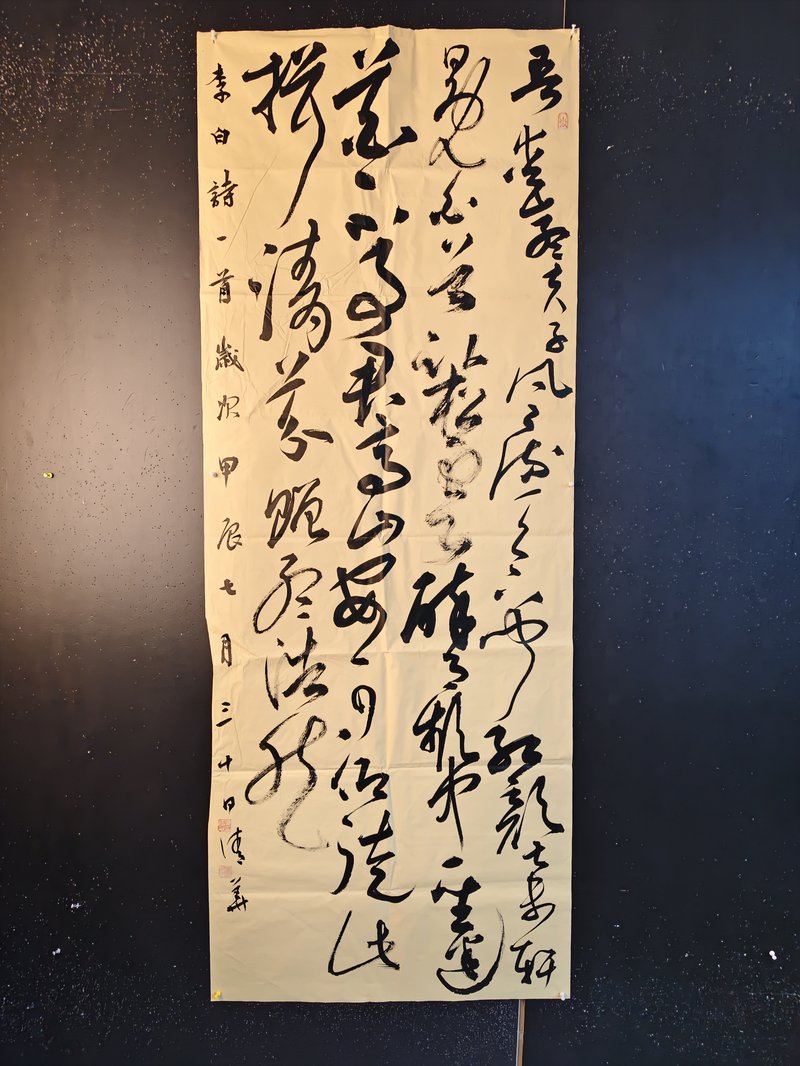 吾愛孟夫子风流天下聞紅顏棄軒
冕白首臥松雲醉月頻中聖迷
花不事君高山安可仰徒此
揖清芬贈孟浩然
李白詩一首歲次甲辰七月三十日清華